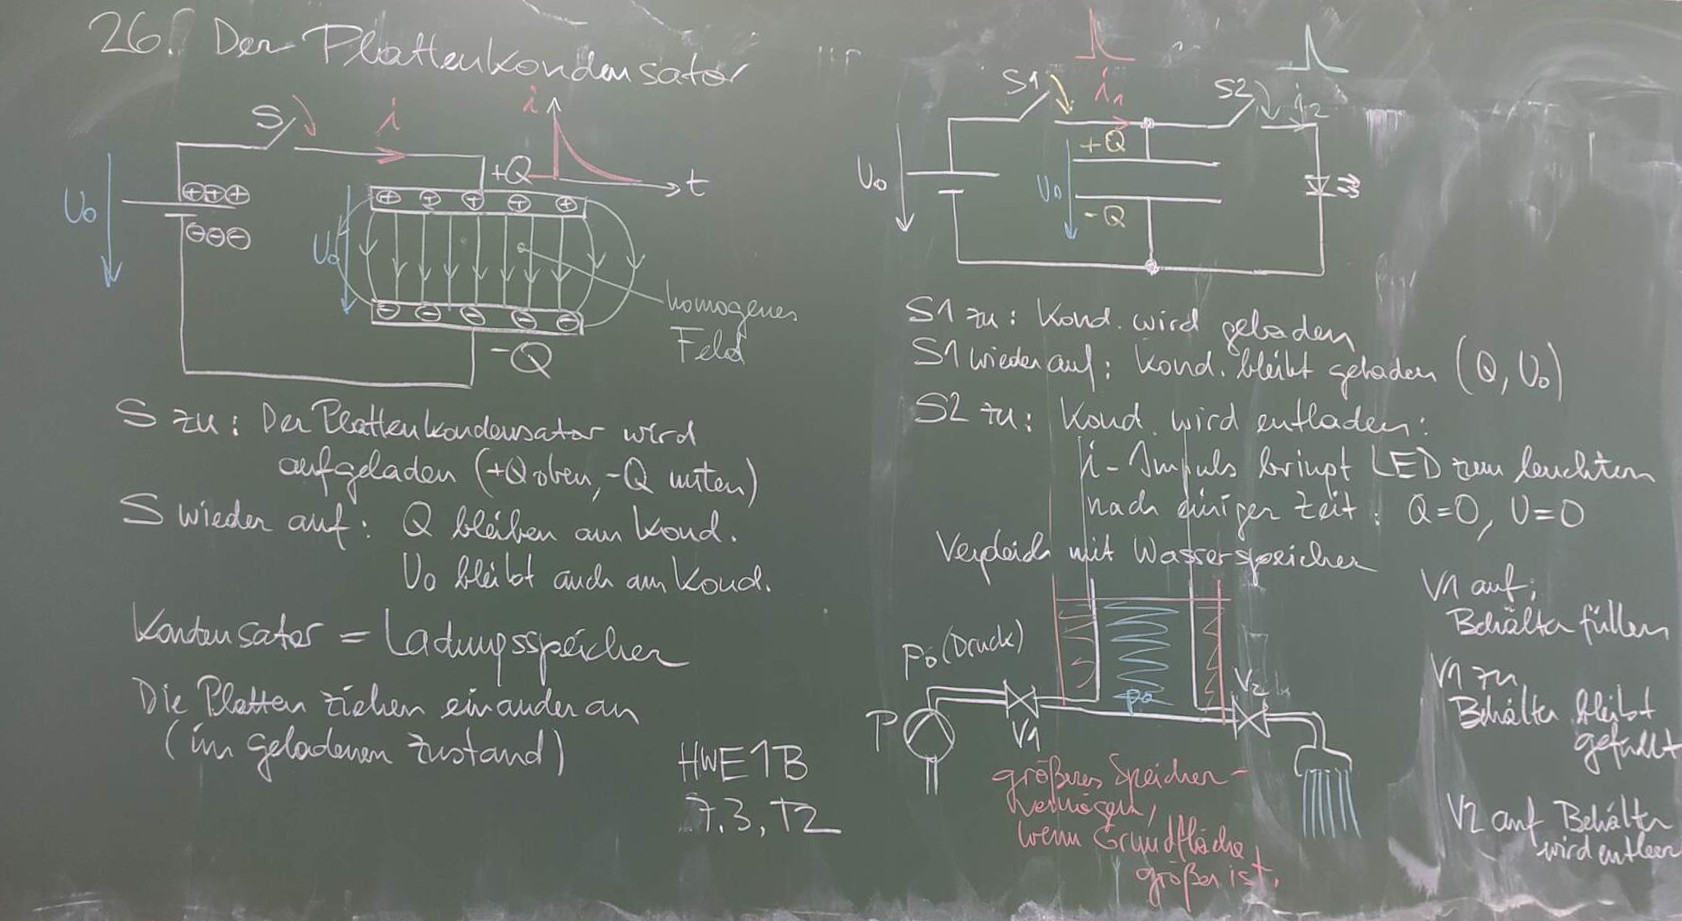 26. Der Plattenkondensator
S
i
i
t
U₀
U₀
+Q
-Q
homogenes
Feld
S zu: Der Plattenkondensator wird
aufgeladen (+Q oben, -Q unten)
S wieder auf: Q bleiben am Kond.
U₀ bleibt auch am Kond.
Kondensator = Ladungsspeicher
Die Platten ziehen einander an
(im geladenen Zustand)
HWE1B
7.3, T2
S1
i₁
S2
i₂
U₀
U₀
+Q
-Q
S1 zu: Kond. wird geladen
S1 wieder auf: Kond. bleibt geladen (Q, U₀)
S2 zu: Kond. wird entladen:
i-Impuls bringt LED zum leuchten
nach einiger Zeit: Q=0, U=0
Vergleich mit Wasserspeicher
p₀ (Druck)
P
V1
p₀
V2
größeres Speicher-
vermögen,
wenn Grundfläche
größer ist.
V1 auf:
Behälter füllen
V1 zu
Behälter bleibt
gefüllt
V2 auf Behälter
wird entleer